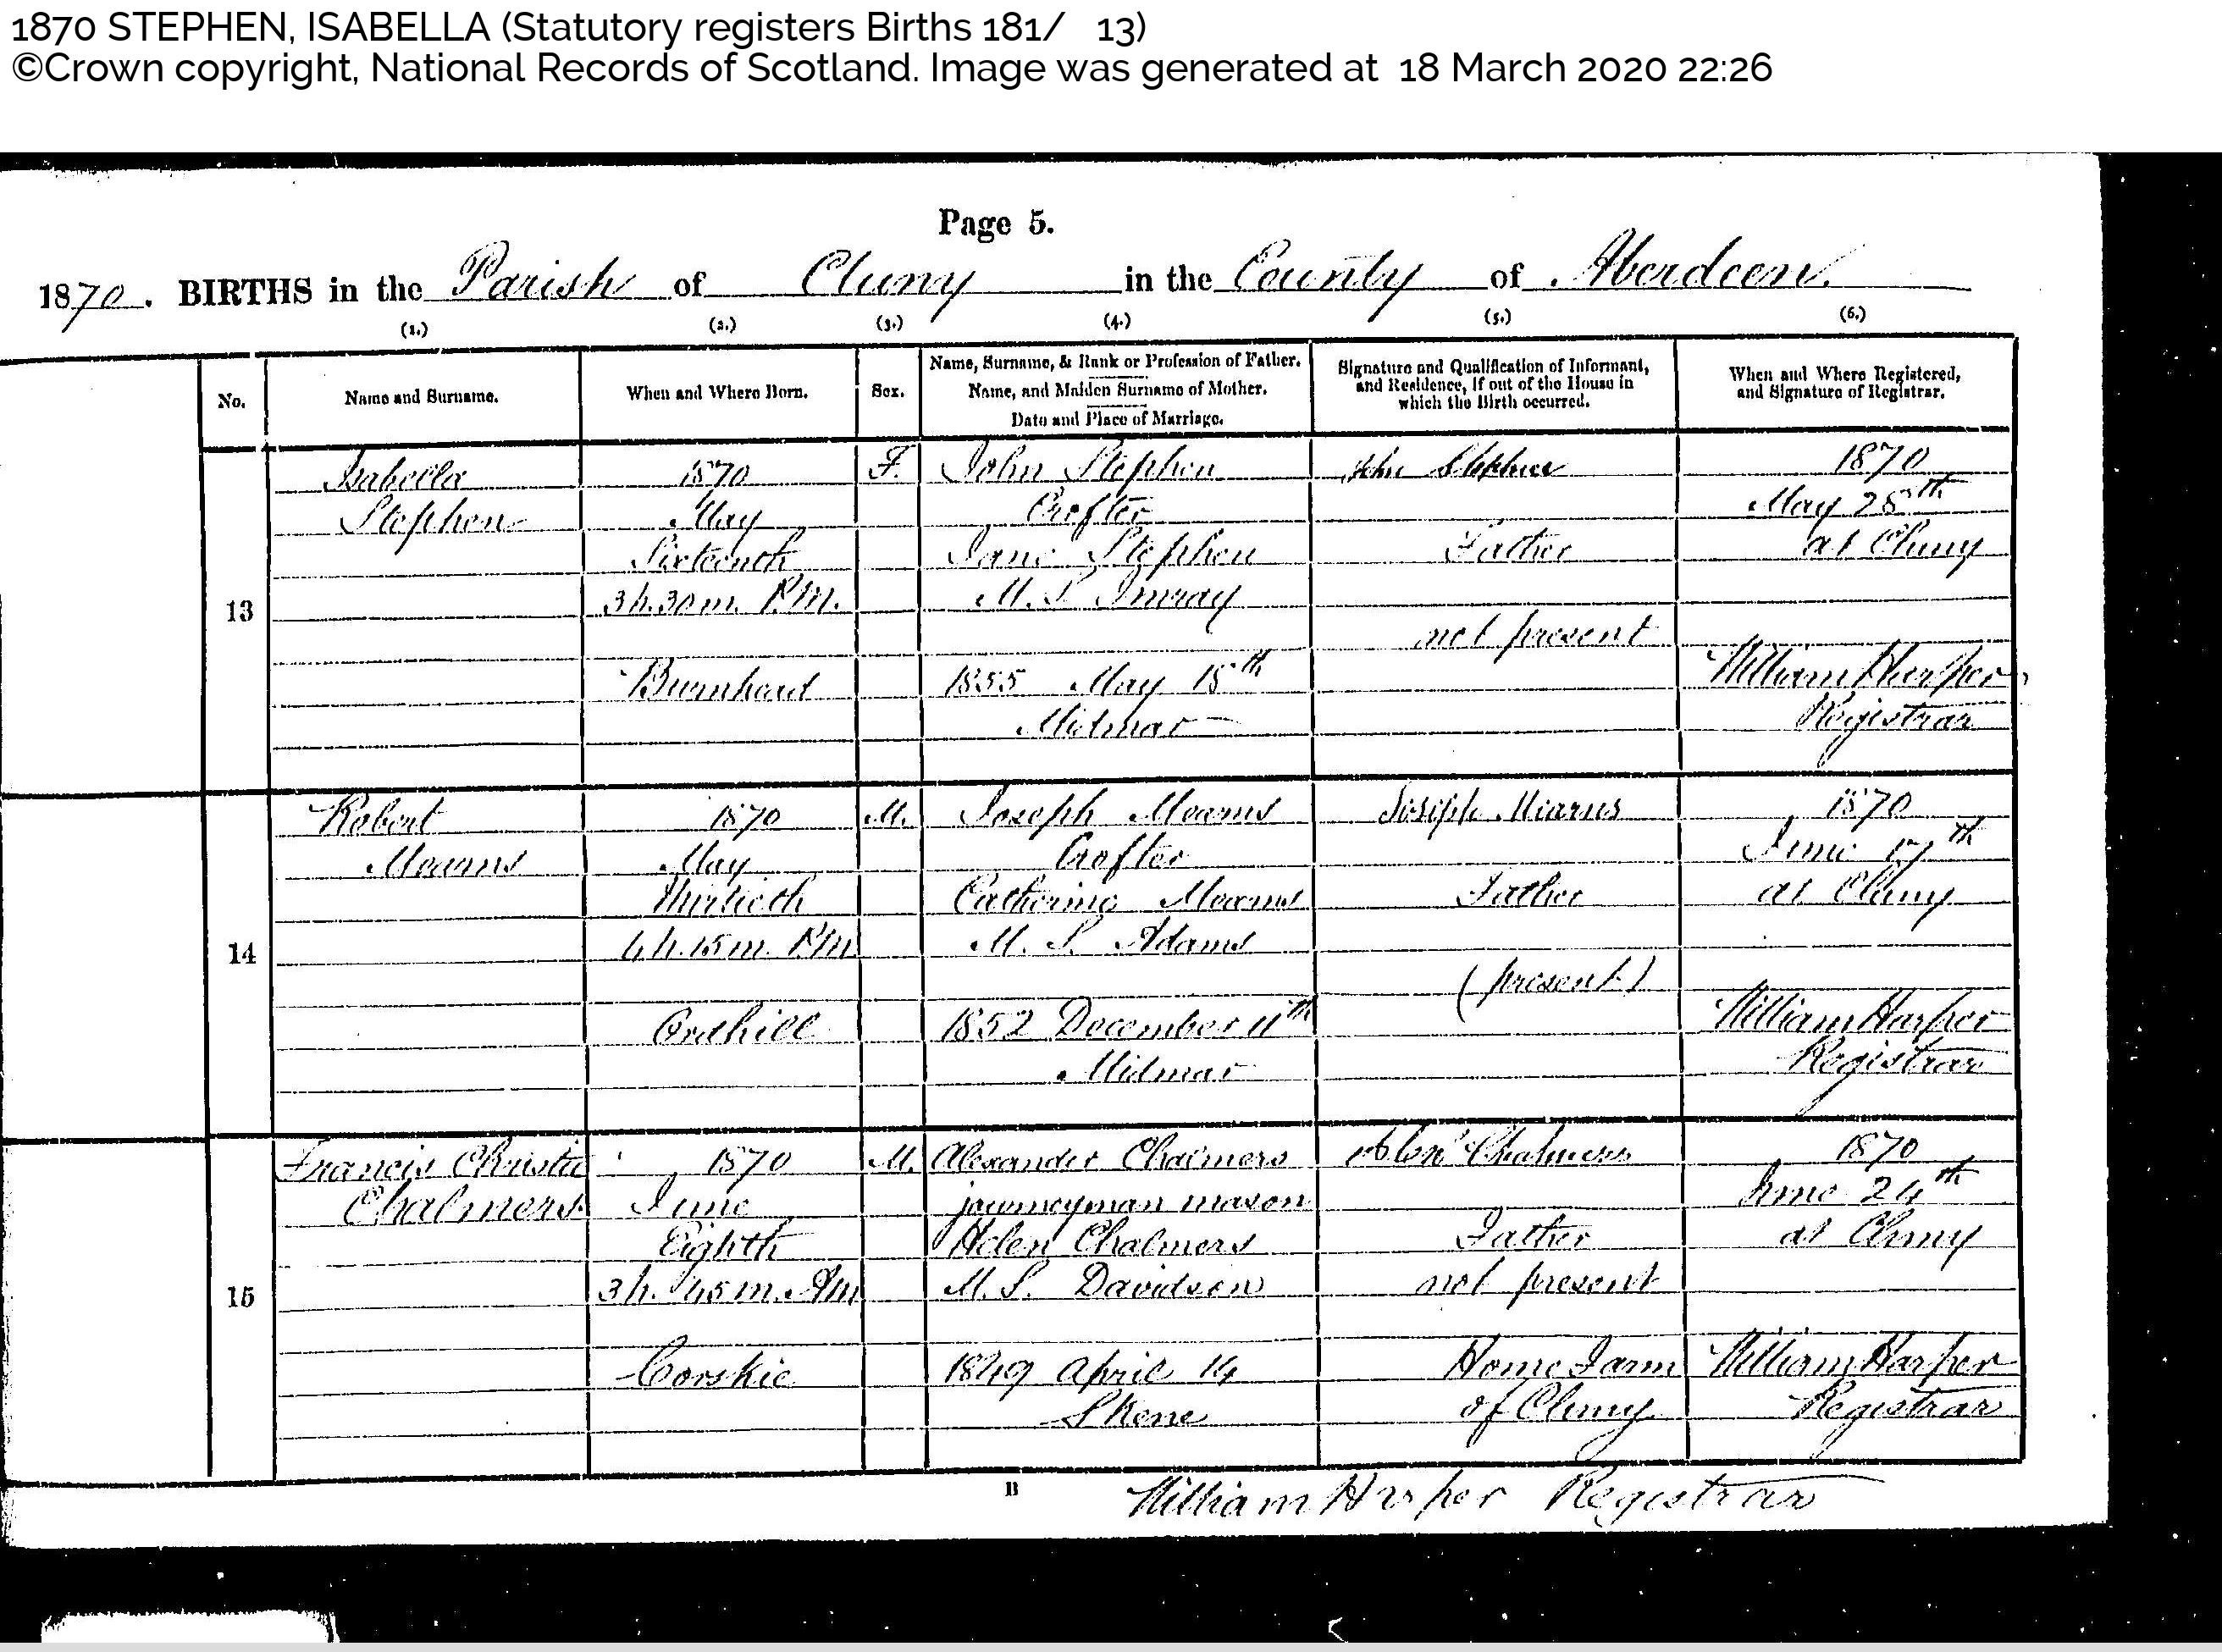 1870 STEPHEN, ISABELLA (Statutory registers Births 181/ 13)
©Crown copyright, National Records of Scotland. Image was generated at 18 March 2020 22:26
Page 5.
1870. BIRTHS in the Parish of Cluny in the County of Aberdeen.
(1.) (2.) (3.) (4.) (5.) (6.)
No.
Name and Surname.
When and Where Born.
Sex.
Name, Surname, & Rank or Profession of Father.
Name, and Maiden Surname of Mother.
Date and Place of Marriage.
Signature and Qualification of Informant,
and Residence, if out of the House in
which the Birth occurred.
When and Where Registered,
and Signature of Registrar.
13
Isabella
Stephen
1870
May
Sixteenth
3h.30m. P.M.
Burnhead
F.
John Stephen
Crofter
Jane Stephen
M.S. Imray
1855 May 18th
Midmar
John Stephen
Father
not present
1870
May 28th
at Cluny
William Harper
Registrar
14
Robert
Mearns
1870
May
Thirtieth
4h.15m. P.M.
Ordhill
M.
Joseph Mearns
Crofter
Catherine Mearns
M.S. Adams
1852 December 11th
Midmar
Joseph Mearns
Father
(present)
1870
June 17th
at Cluny
William Harper
Registrar
15
Francis Christie
Chalmers
1870
June
Eighth
3h. 45m. AM
Corskie
M.
Alexander Chalmers
journeyman mason
Helen Chalmers
M.S. Davidson
1849 April 14
Skene
Alexr Chalmers
Father
not present
Home Farm
of Cluny
1870
June 24th
at Cluny
William Harper
Registrar
B
William Harper Registrar